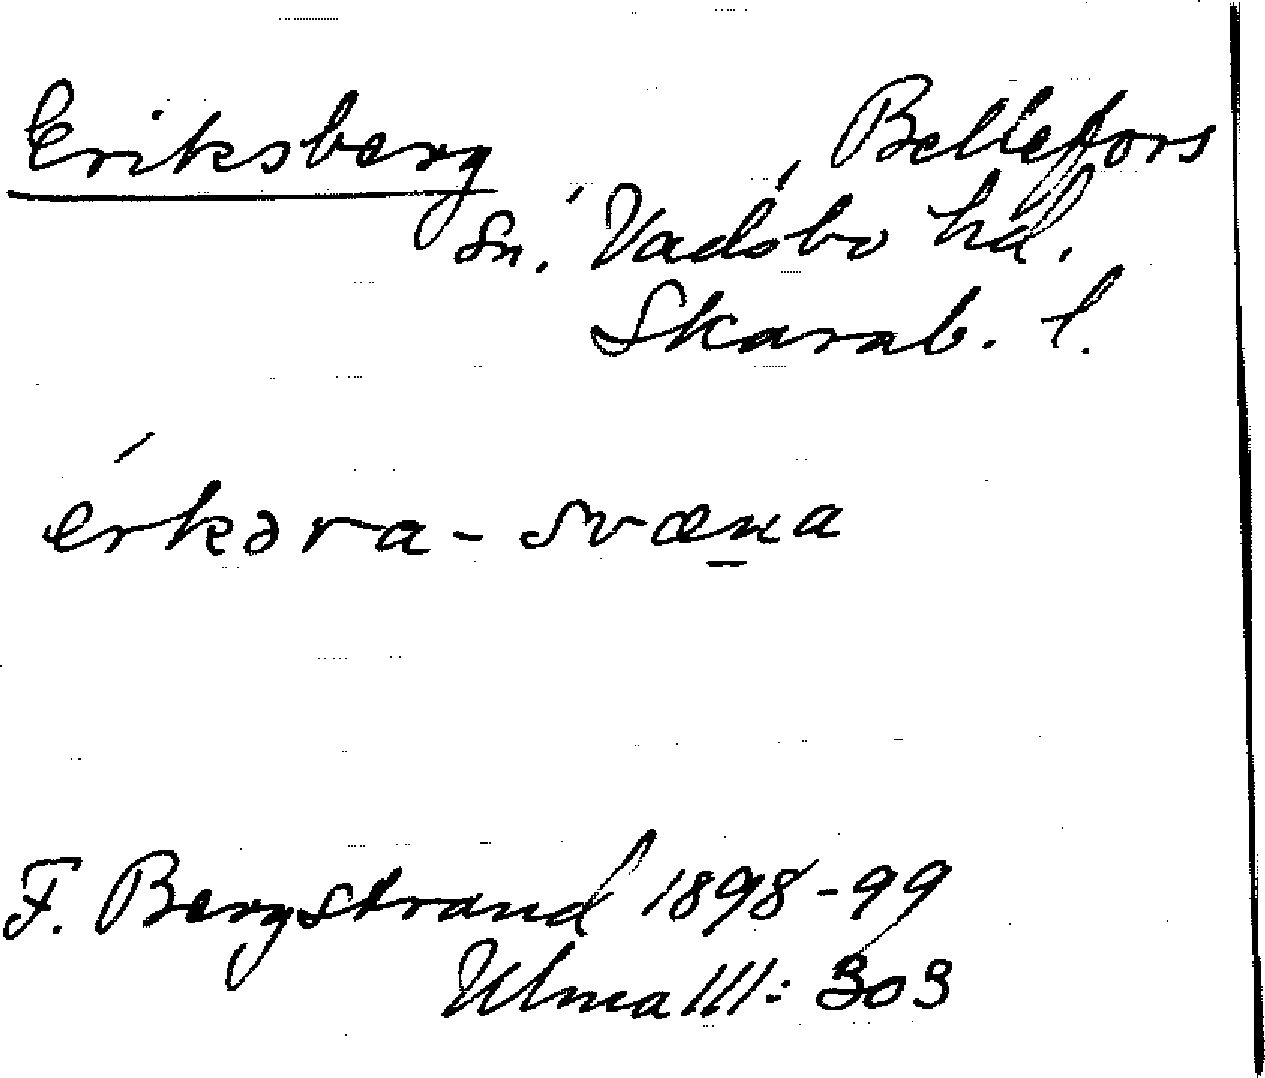 Eriksberg, Bellefors
sn. Vadsbo hd.
Skarab. l.
érkəra-svæna
F. Bergstrand 1898-99
Ulma 111: 303